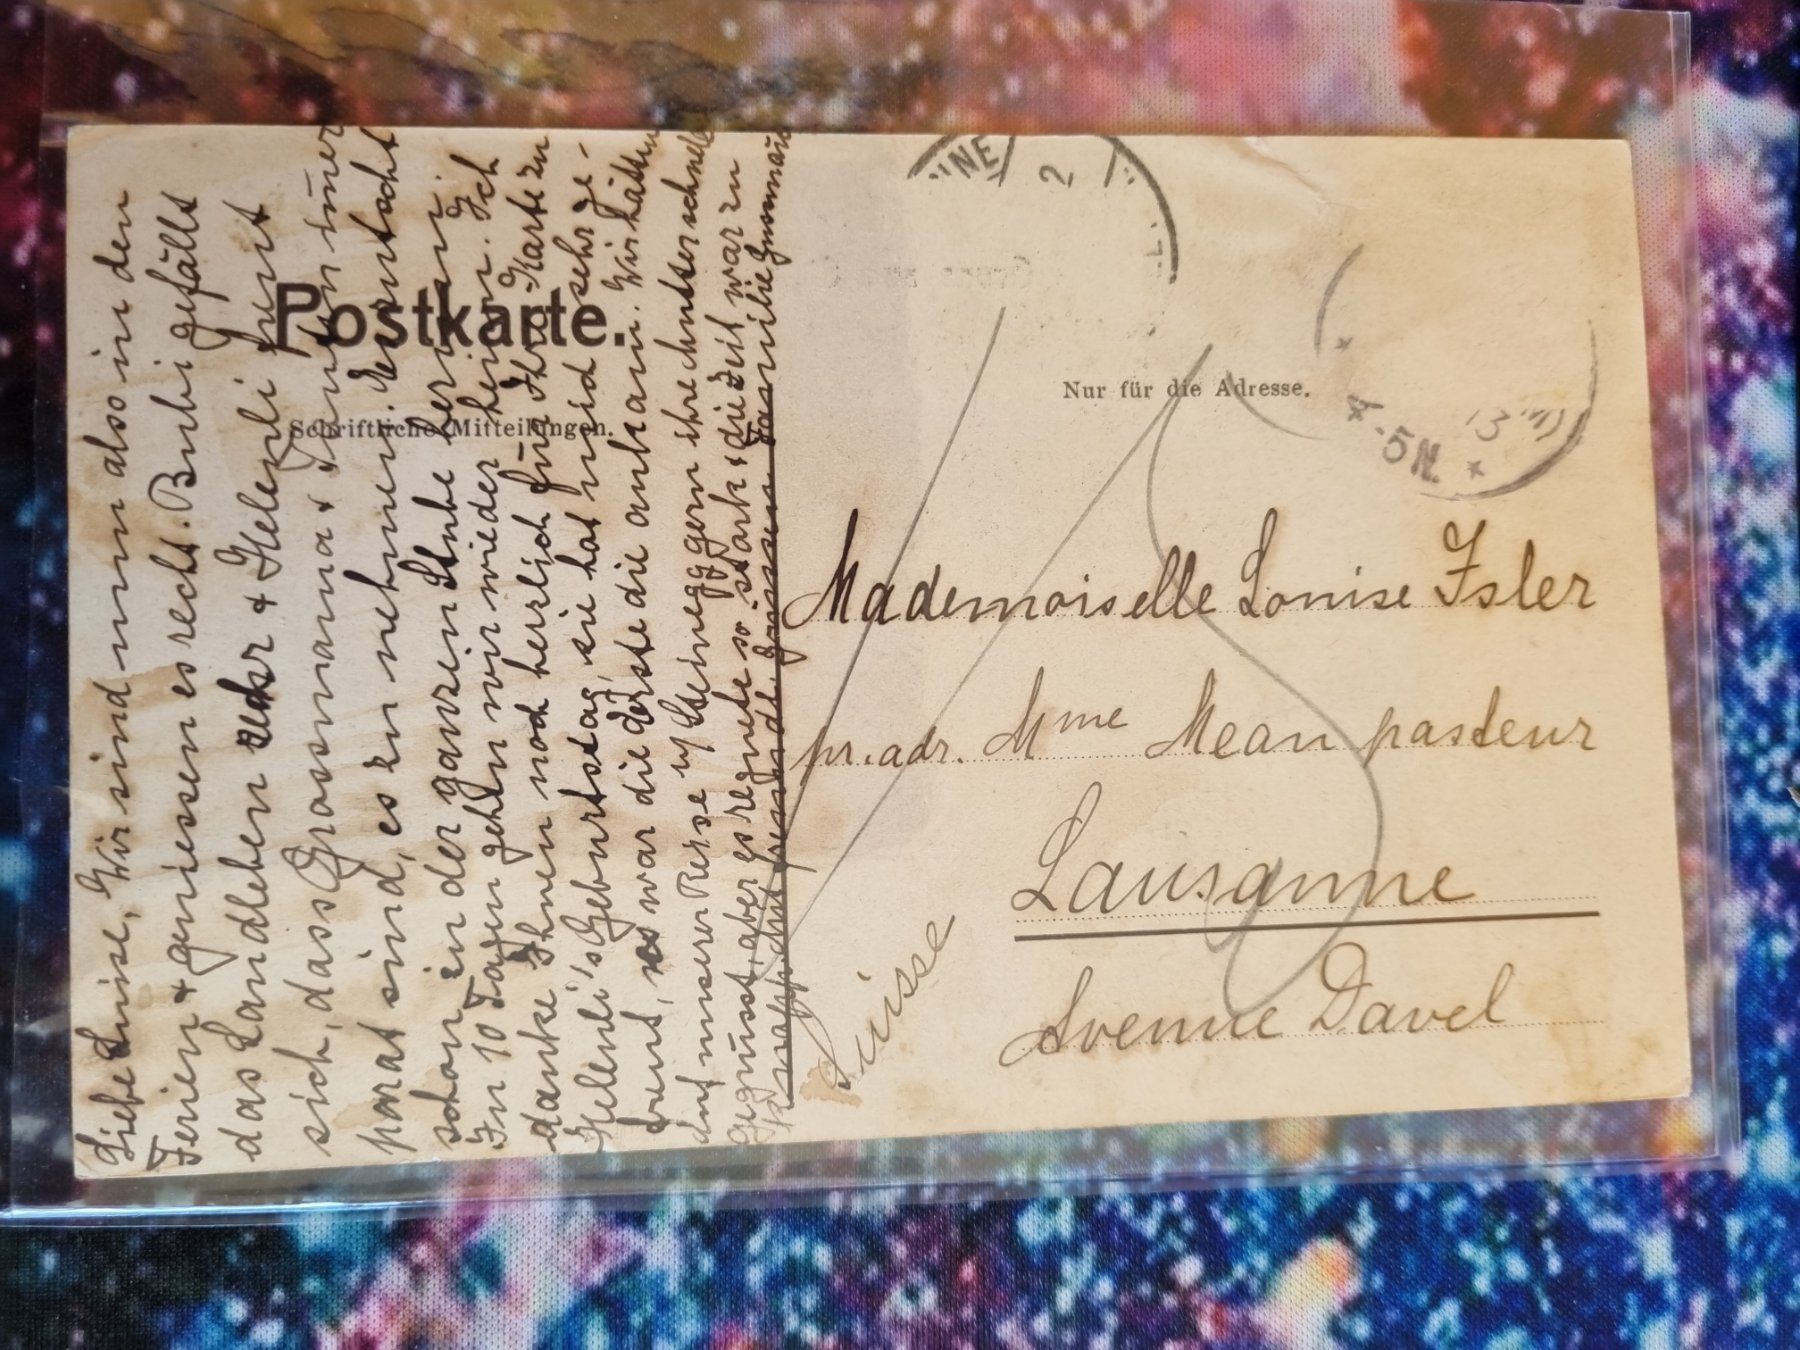 Postkarte.
Schriftliche Mitteilungen.
Nur für die Adresse.
Liebe Luise, Wir sind nun also in den
Ferien & geniessen es recht. Bubi gefällt
das Landleben sehr & Helenli freut
sich, dass Grossmama & Tanten immer
parat sind, es zu nehmen. Es rutscht
schon in der ganzen Stube herum.
In 10 Tagen gehen wir wieder heim. Ich
danke Ihnen noch herzlich für Ihre Karte zu
Helenli's Geburtstag, sie hat mich sehr ge-
freut, es war die erste die ankam. Wir hätten
auf unserer Reise Steinegg gern ihre
gegrüsst, aber es regnete so stark & die Zeit war zu
Familie Zusammen
Mademoiselle Louise Isler
pr. adr. Mme Mean pasteur
Lausanne
Avenue Davel
Suisse
2
5 N.